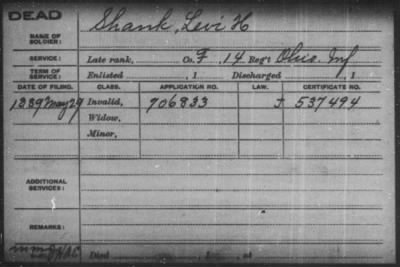 DEAD
NAME OF SOLDIER: Shank, Levi H
SERVICE: Late rank, Co. F, 14 Reg't Ohio Inf
TERM OF SERVICE: Enlisted , 1 Discharged , 1
DATE OF FILING. CLASS. APPLICATION NO. LAW. CERTIFICATE NO.
1889 May 29 Invalid, 706833 537494
Widow,
Minor,
ADDITIONAL SERVICES:
REMARKS:
Died , at